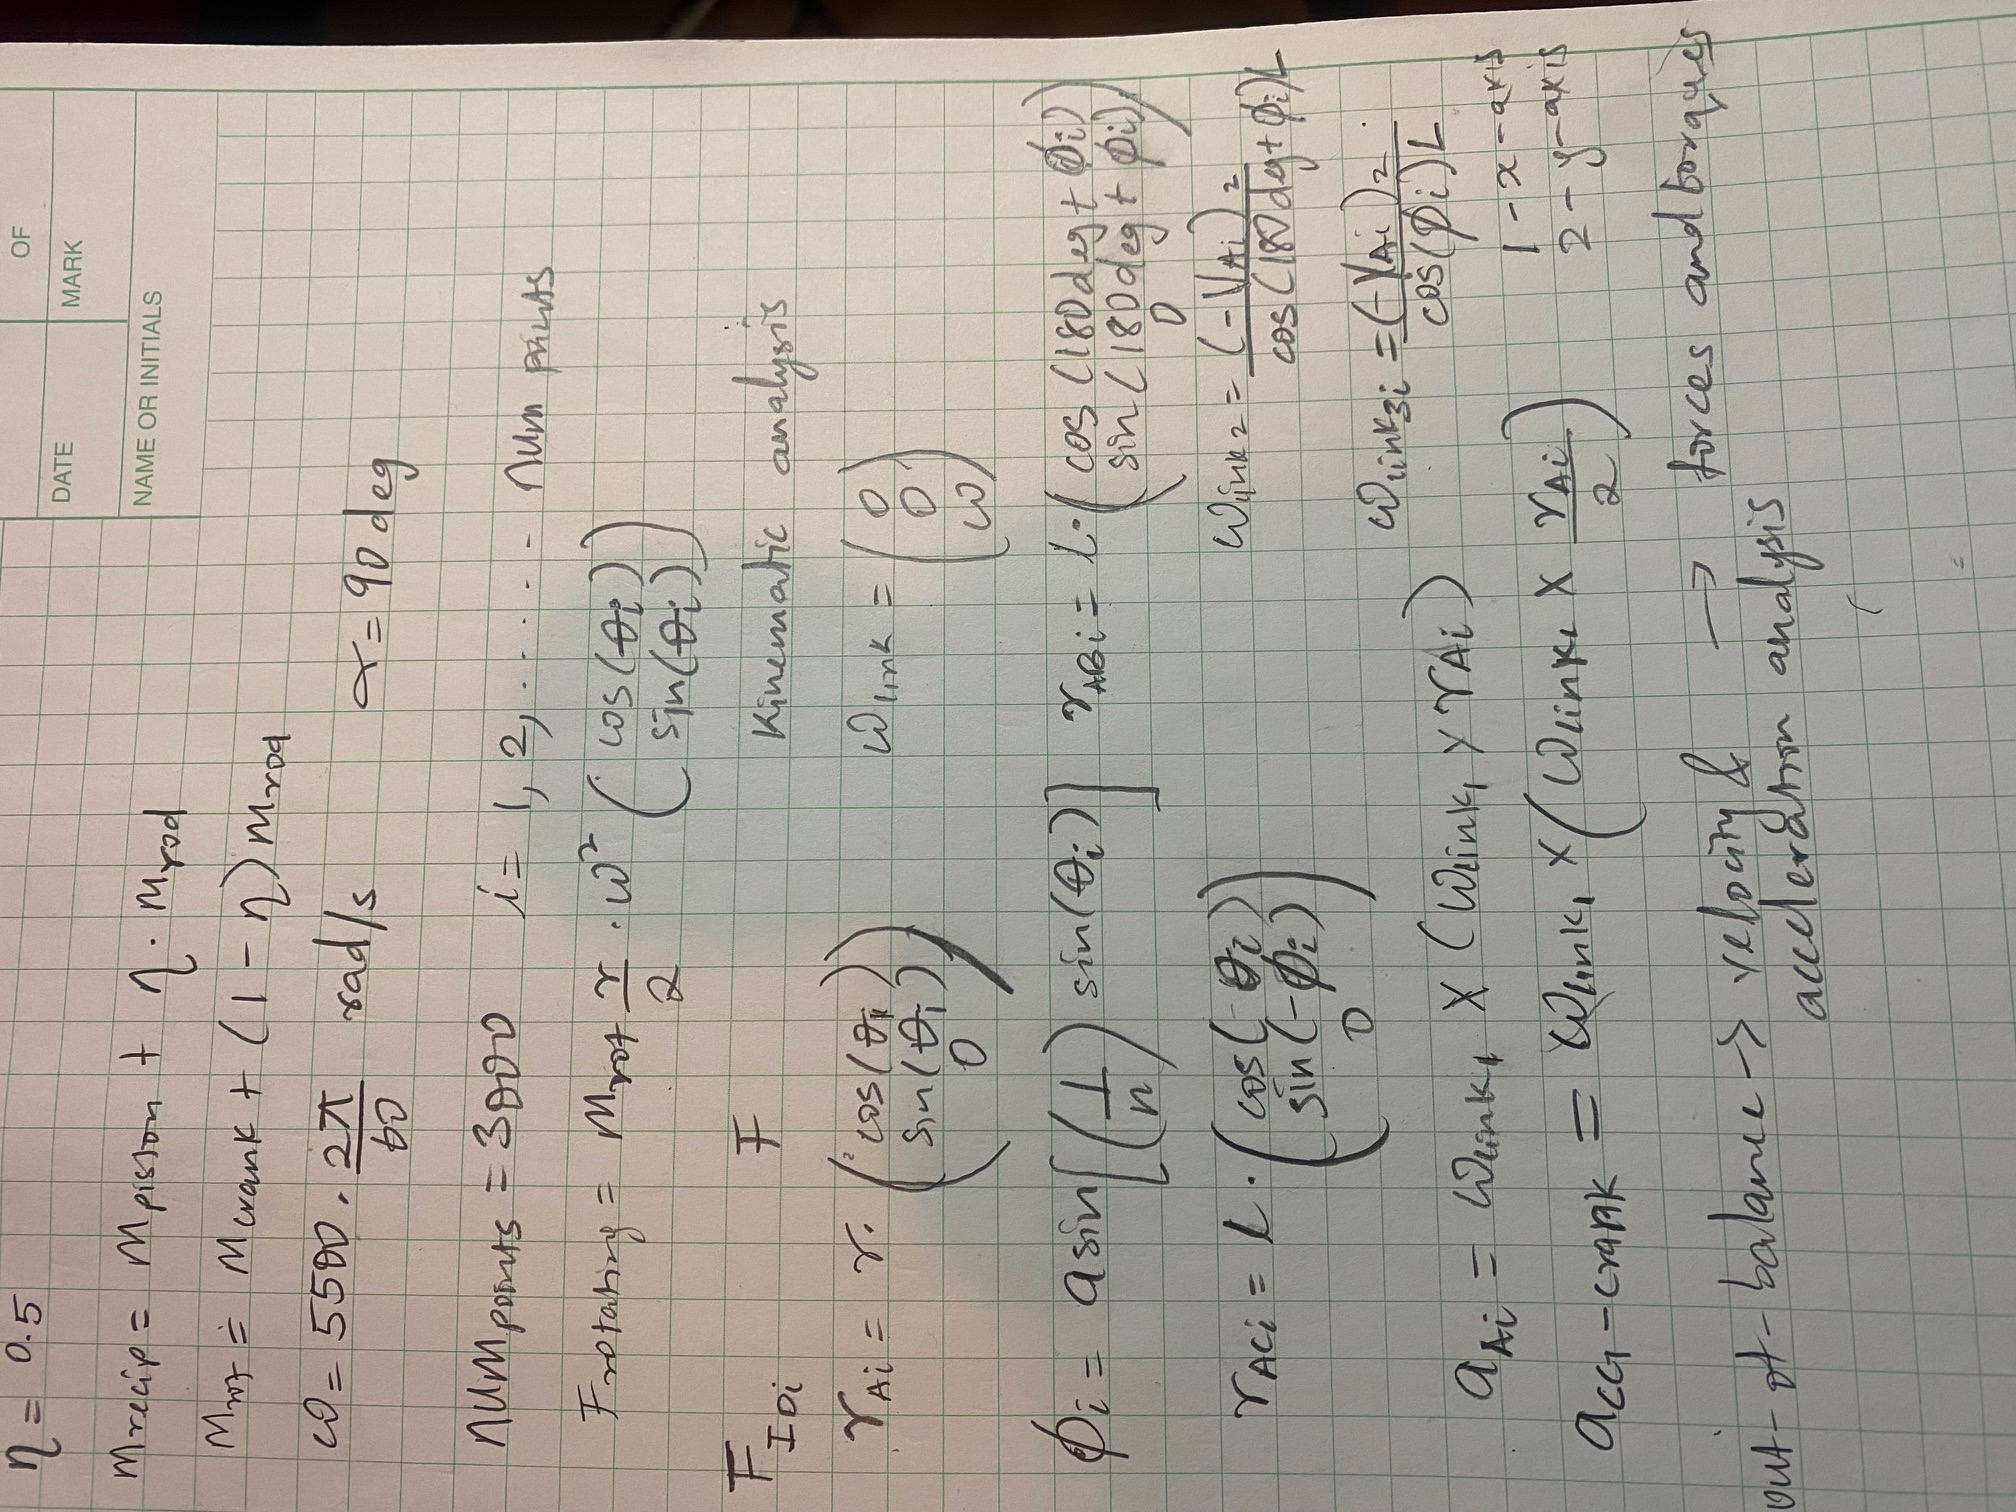 OF
DATE
MARK
NAME OR INITIALS
η = 0.5
m_recip = m_piston + η · m_rod
m_rot = m_crank + (1 - η) m_rod
ω = 5500 · 2π/60 rad/s α = 90 deg
numpoints = 3000 i = 1, 2, . . . . . num points
F_rotating = m_rot r/2 · ω² (cos(θi) sin(θi))
F_IDi F Kinematic analysis
r_Ai = r · (cos(θi) sin(θi) 0) ω_link = (0 0 ω)
ϕi = asin[(1/n) sin(θi)] r_ABi = L · (cos(180deg + ϕi) sin(180deg + ϕi) 0)
r_ACi = L · (cos(-θi) sin(-ϕi) 0) ω_link2 = (-V_Ai)2 / cos(180deg + ϕi)L
ω_link3i = (-V_Ai)2 / cos(ϕi)L
a_Ai = ω_link1 × (ω_link1 × r_Ai) 1 - x - axis
2 - y - axis
a_CG-crank = ω_link1 × (ω_link1 × r_Ai/2)
out-of-balance → velocity & → forces and torques
acceleration analysis